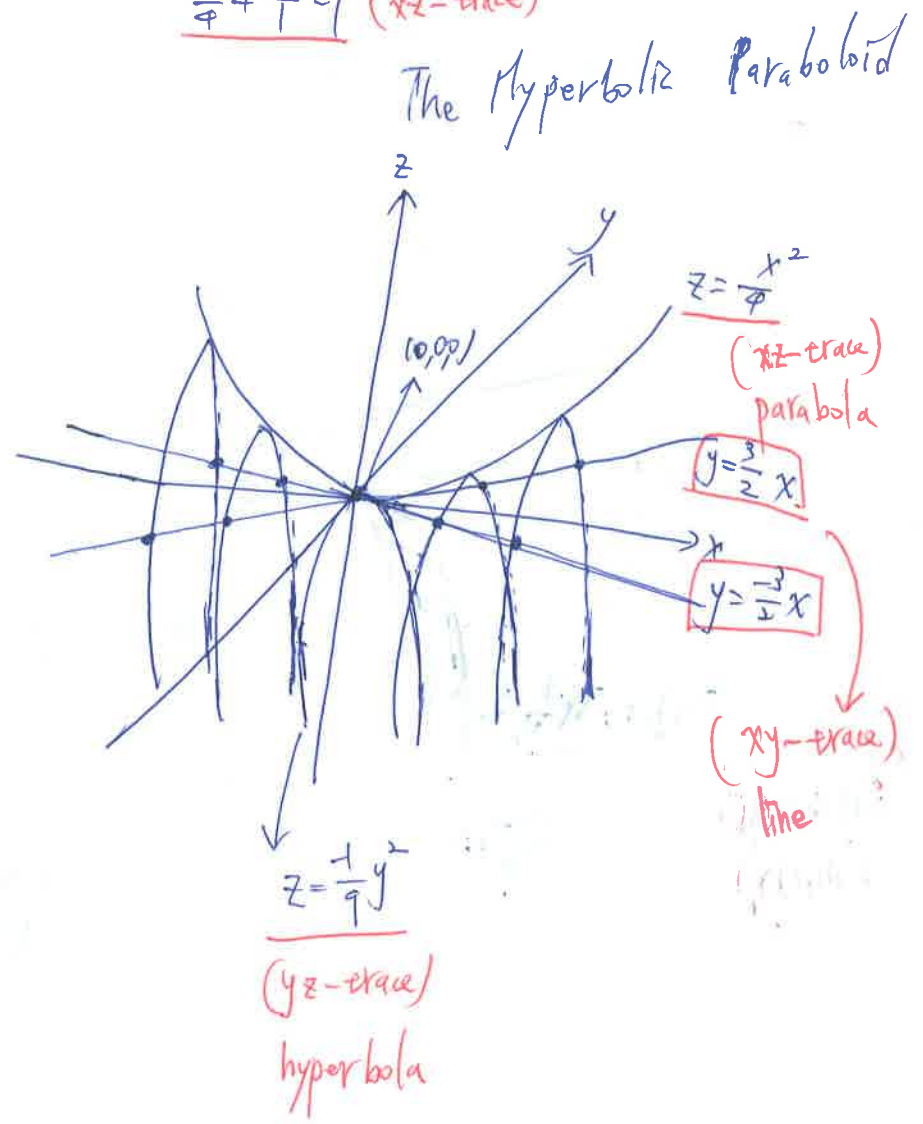 (xz-trace)
The Hyperbolic Paraboloid
z
y
(0,0,0)
z = x²/4
(xz-trace)
parabola
y = 3/2 x
x
y = -3/2 x
(xy-trace)
line
z = -1/9 y²
(yz-trace)
hyperbola